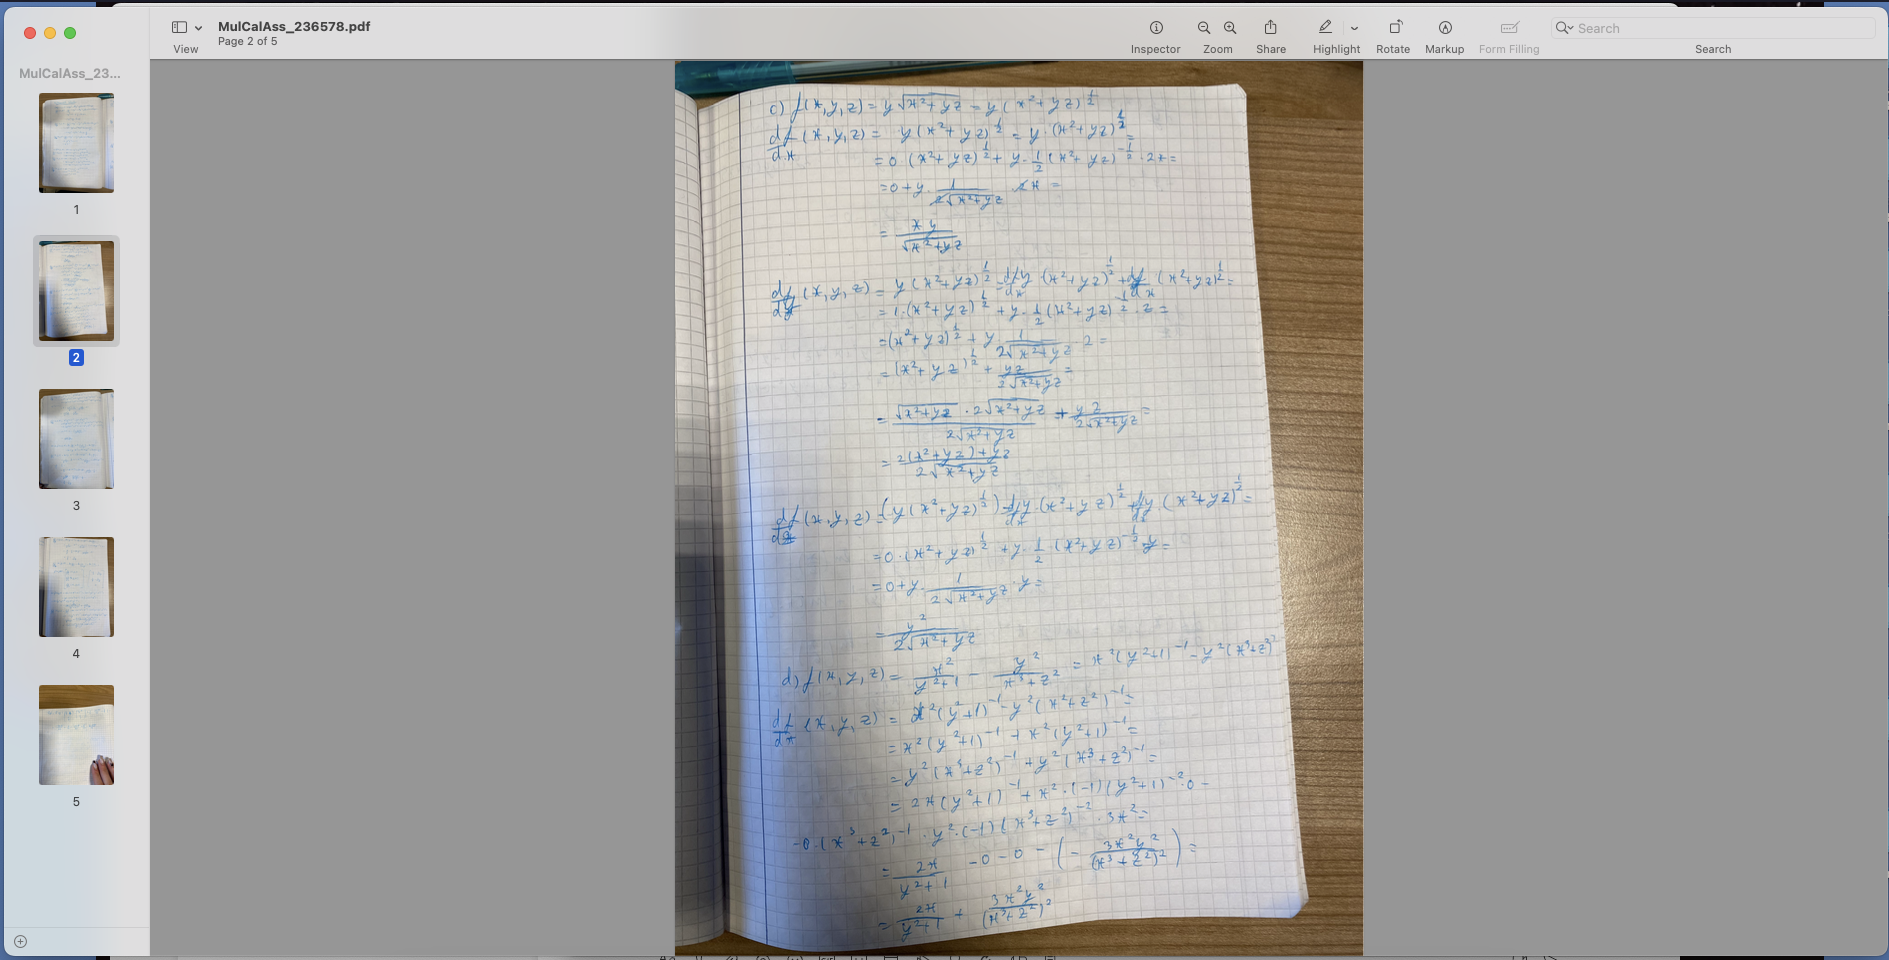 MulCalAss_236578.pdf
Page 2 of 5
View
Inspector
Zoom
Share
Highlight
Rotate
Markup
Form Filling
Search
Search
MulCalAss_23...
1
2
3
4
5
c) f(x,y,z) = y √x²+yz = y (x²+yz)^½
df/dx (x,y,z) = y(x²+yz)^½ = y·(x²+yz)^½ =
= 0 (x²+yz)^½ + y·½(x²+yz)^-½ · 2x =
= 0+y· 1/2√x²+yz · 2x =
= xy/√x²+yz
df/dy (x,y,z) = y(x²+yz)^½ = df/dx y (x²+yz)^½ + dy/dx (x²+yz)^½ =
= 1·(x²+yz)^½ + y·½(x²+yz)^-½ · z =
= (x²+yz)^½ + y 1/2√x²+yz · z =
= (x²+yz)^½ + yz/2√x²+yz =
= √x²+yz · 2√x²+yz/2√x²+yz + yz/2√x²+yz =
= 2(x²+yz)+yz/2√x²+yz
(x,y,z) = (y(x²+yz)^½) (x²+yz)^½ (x²+yz)^½ =
= 0·(x²+yz)^½ + y·½·(x²+yz)^-½ · y =
= 0+y· 1/2√x²+yz · y =
= y²/2√x²+yz
d) f(x,y,z) = x²/y²+1 - y²/x³+z² = x²(y²+1)^-1 - y²(x³+z)²
df/dx (x,y,z) = x²(y²+1)^-1 - y²(x²+z²)^-1 =
= x²(y²+1)^-1 + x²(y²+1)^-1 =
= y²(x³+z²)^-1 + y²(x³+z²)^-1 =
= 2x(y²+1)^-1 + x²·(-1)(y²+1)^-2·0 -
-0·(x³+z²)^-1 · y²·(-1)(x³+z²)^-2 · 3x² =
= 2x/y²+1 -0-0-(- 3x²y²/(x³+z²)²) =
= 2x/y²+1 + 3x²y²/(x³+z²)²